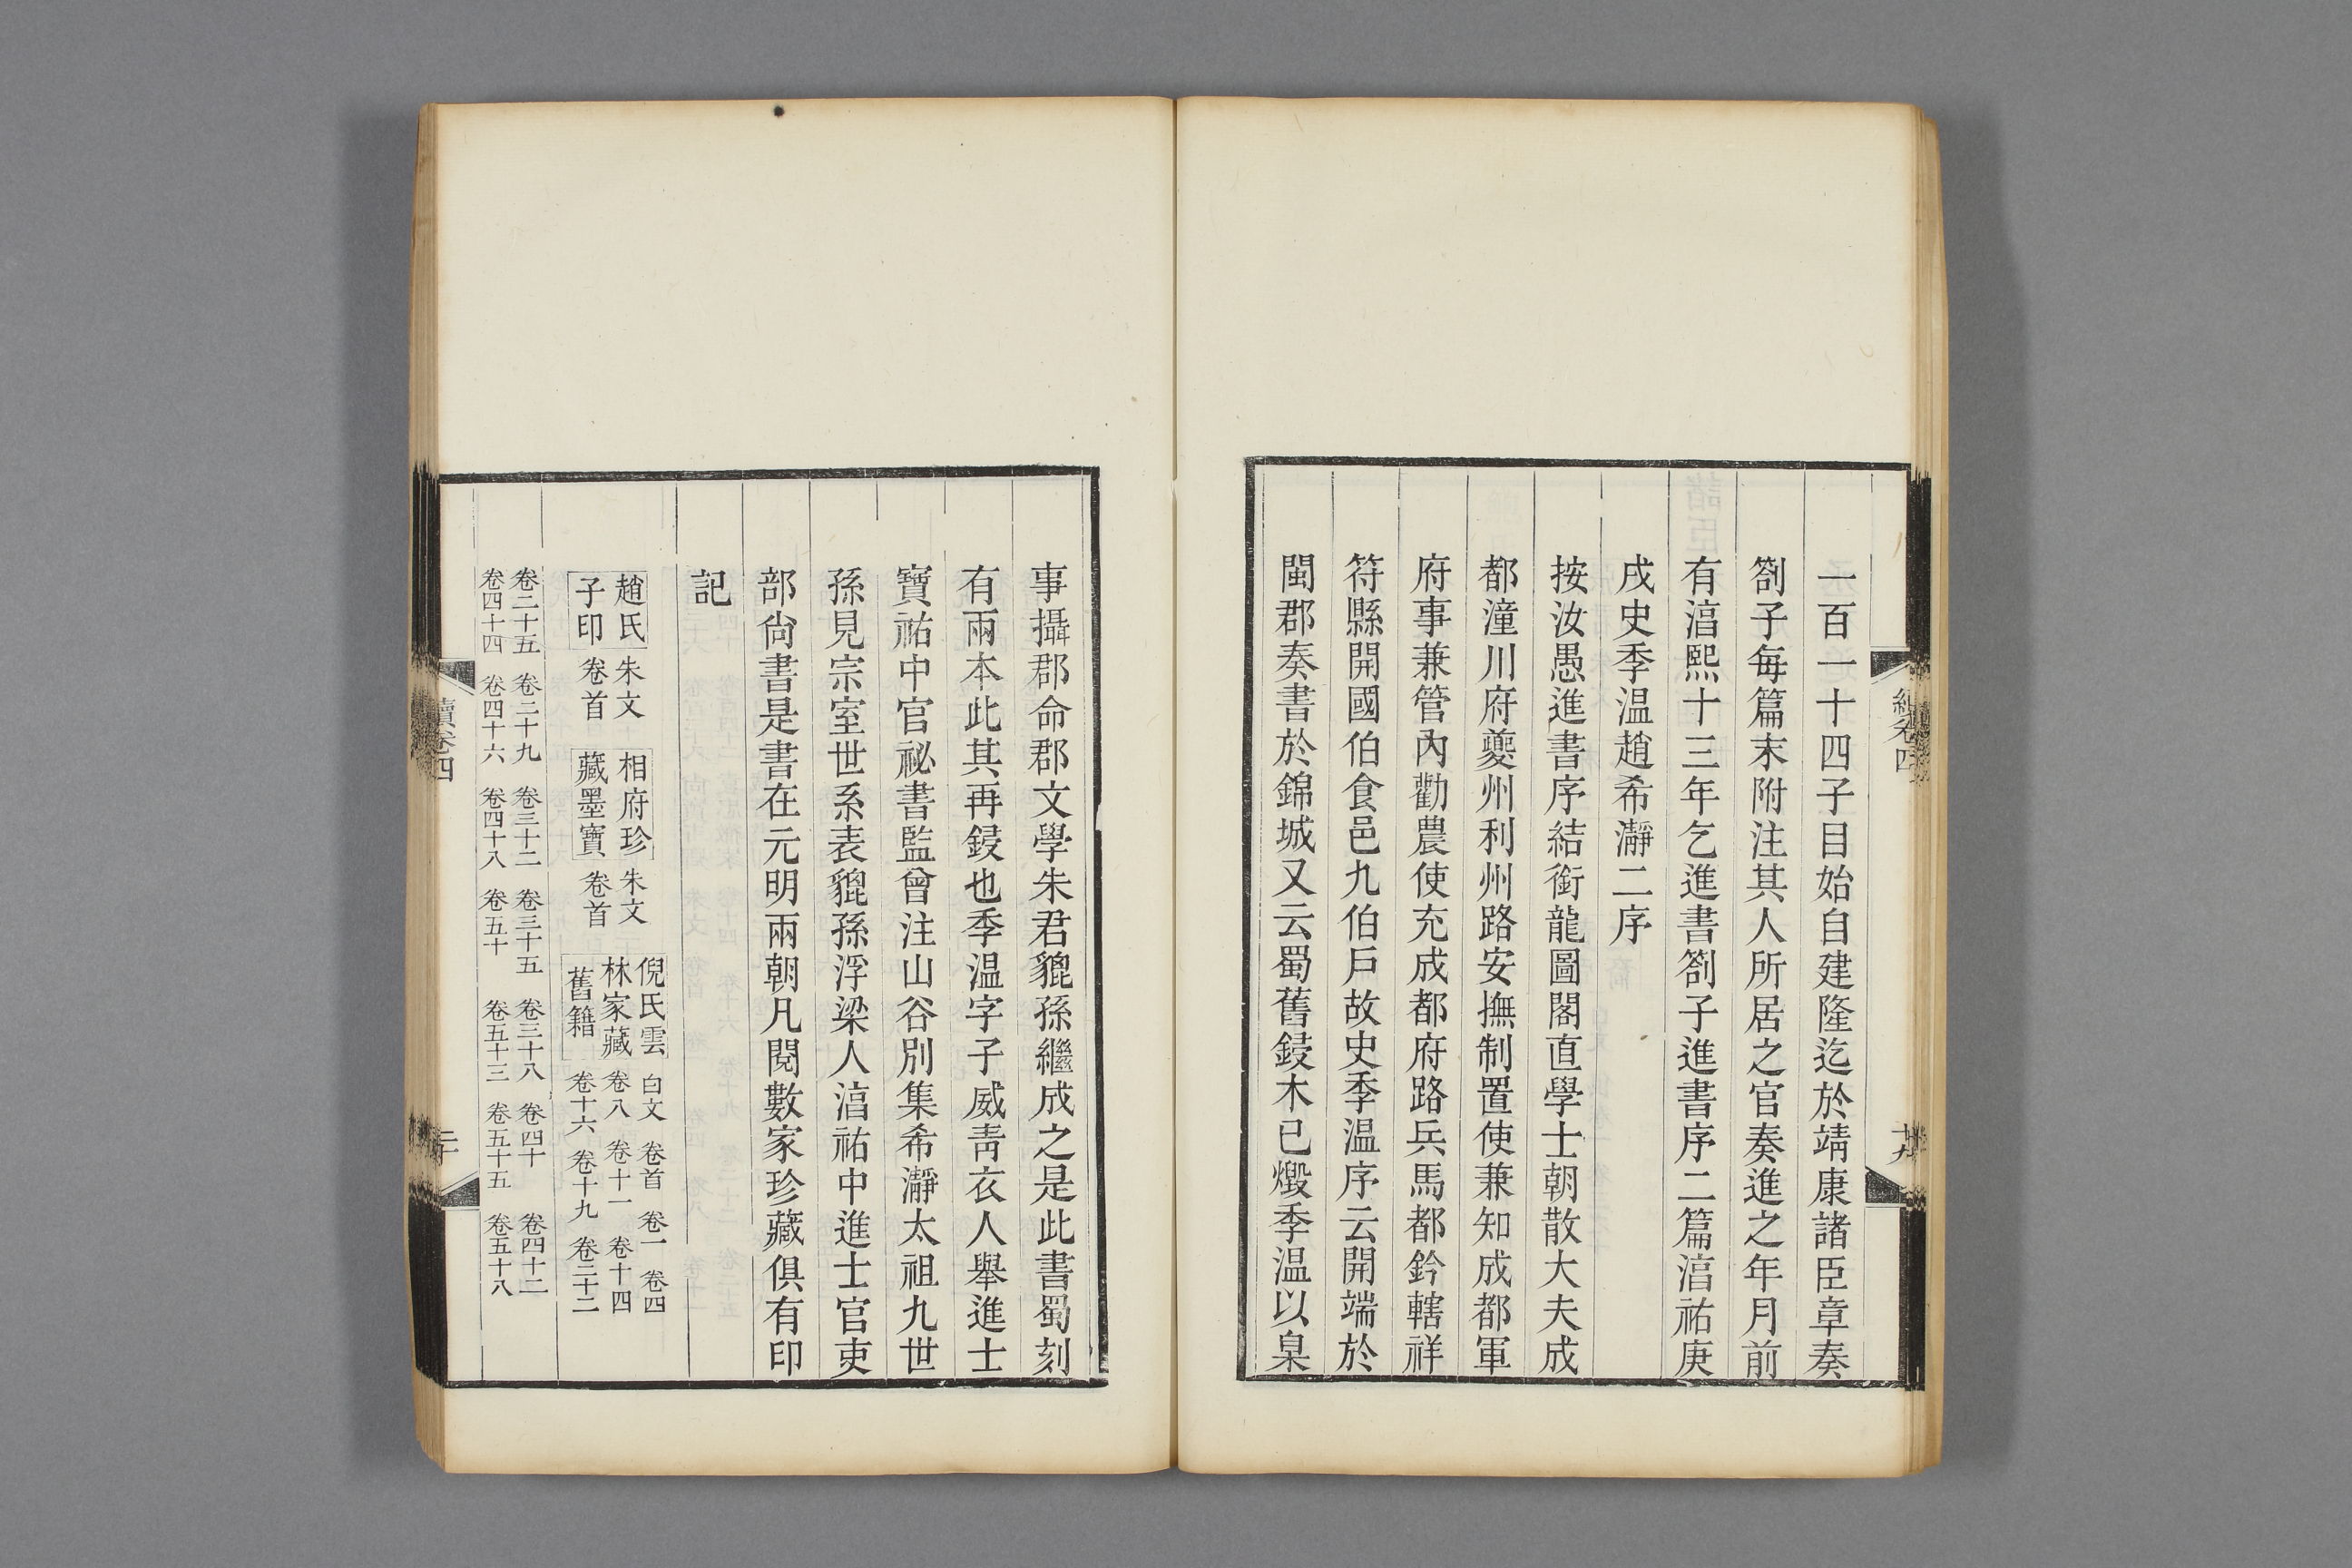 一百一十四子目始自建隆迄於靖康諸臣章奏
劄子每篇末附注其人所居之官奏進之年月前
有湻熙十三年乞進書劄子進書序二篇湻祐庚
戌史季温趙希瀞二序
按汝愚進書序結銜龍圖閣直學士朝散大夫成
都潼川府夔州利州路安撫制置使兼知成都軍
府事兼管內勸農使充成都府路兵馬都鈐轄祥
符縣開國伯食邑九伯戶故史季温序云開端於
閩郡奏書於錦城又云蜀舊鋟木已燬季温以臬
事攝郡命郡文學朱君貔孫繼成之是此書蜀刻
有兩本此其再鋟也季温字子威靑衣人舉進士
寶祐中官祕書監曾注山谷別集希瀞太祖九世
孫見宗室世系表貔孫浮梁人湻祐中進士官吏
部尙書是書在元明兩朝凡閱數家珍藏俱有印
記
趙氏子印 朱文卷首
相府珍藏墨寶 朱文卷首
倪氏雲林家藏舊籍 白文 卷首 卷一 卷四
卷八 卷十一 卷十四
卷十六 卷十九 卷二十二
卷二十五 卷二十九 卷三十二 卷三十五 卷三十八 卷四十 卷四十二
卷四十四 卷四十六 卷四十八 卷五十 卷五十三 卷五十五 卷五十八
續卷四
二十